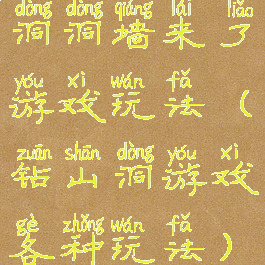 dòng dòng qiáng lái liǎo
洞洞墙来了
yóu xì wán fǎ
游戏玩法（
zuān shān dòng yóu xì
钻山洞游戏
gè zhǒng wán fǎ
各种玩法）